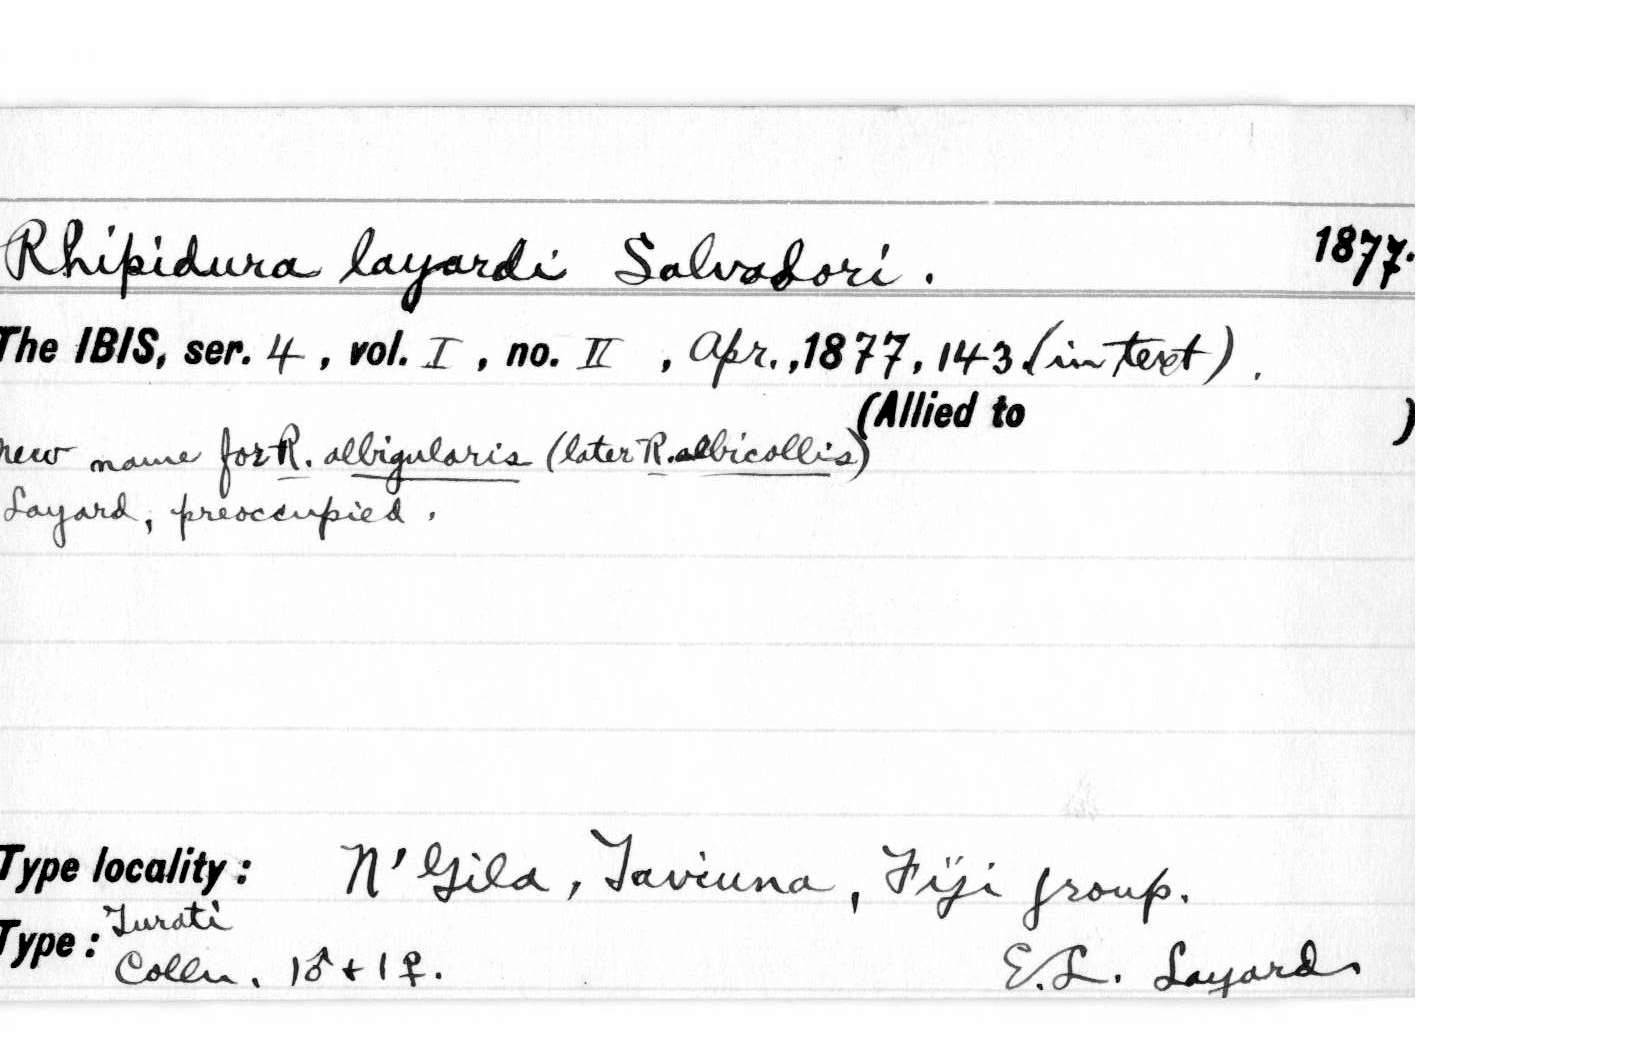 Rhipidura layardi Salvadori. 1877.
The IBIS, ser. 4, vol. I, no. II, Apr., 1877, 143 (in text).
(Allied to )
new name for R. albigularis (later R. albicollis)
Layard, preoccupied.
Type locality: N'Gila, Taviuna, Fiji group.
Type: Turati
Colln. 1♂ + 1♀. E.L. Layard